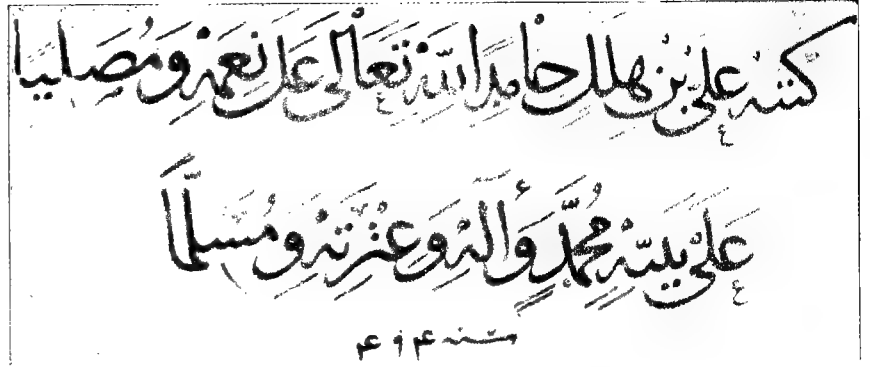 كتبه عَلِىُّ بْنُ هِلَلٍ حَامِدًا لِلَّهِ تَعَالَى عَلَى نِعَمِهِ وَمُصَلِّيًا
عَلَى نبيِّهِ مُحَمَّدٍ وَأٓلِهِ وَعِتْرَتِهِ وَمُسَلِّمًا
سنه